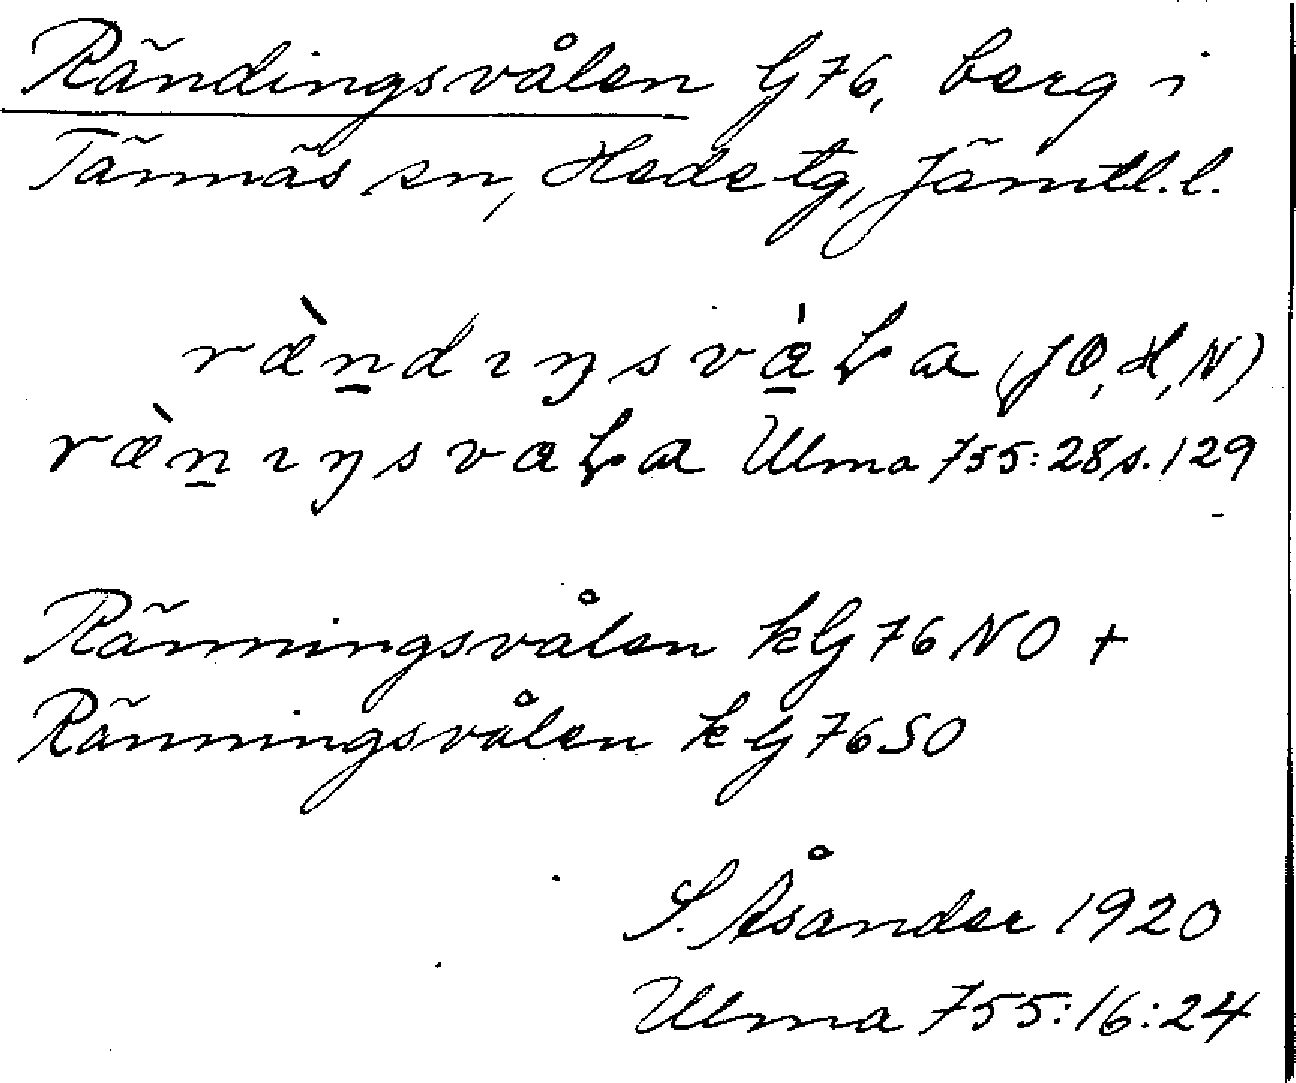 Rändingsvålen G76, berg i
Tännäs sn, Hede tg, Jämtl.l.
ræ̀n̲dıŋsvȧ̲ɽa (JO, H, N)
ræ̀n̲ıŋsvaɽa Ulma 755:28 s. 129
Ränningsvålen kG76NO +
Ränningsvålen kG76SO
S. Åsander 1920
Ulma 755:16:24